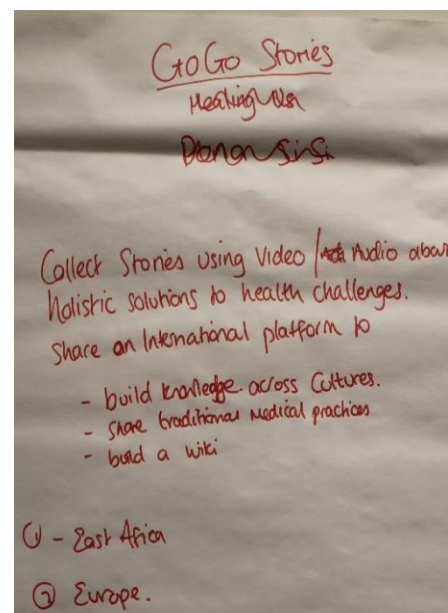 GoGo Stories
Healing
Collect Stories using Video / Audio about
holistic solutions to health challenges.
Share an International platform to
- build knowledge across Cultures.
- Share traditional medical practices
- build a wiki
① - East Africa
② Europe.